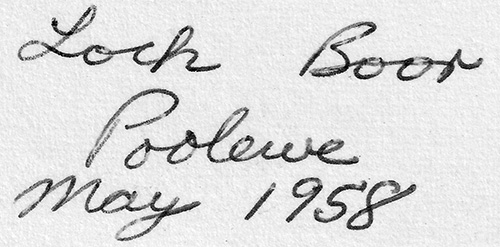 Loch Boor
Poolewe
May 1958